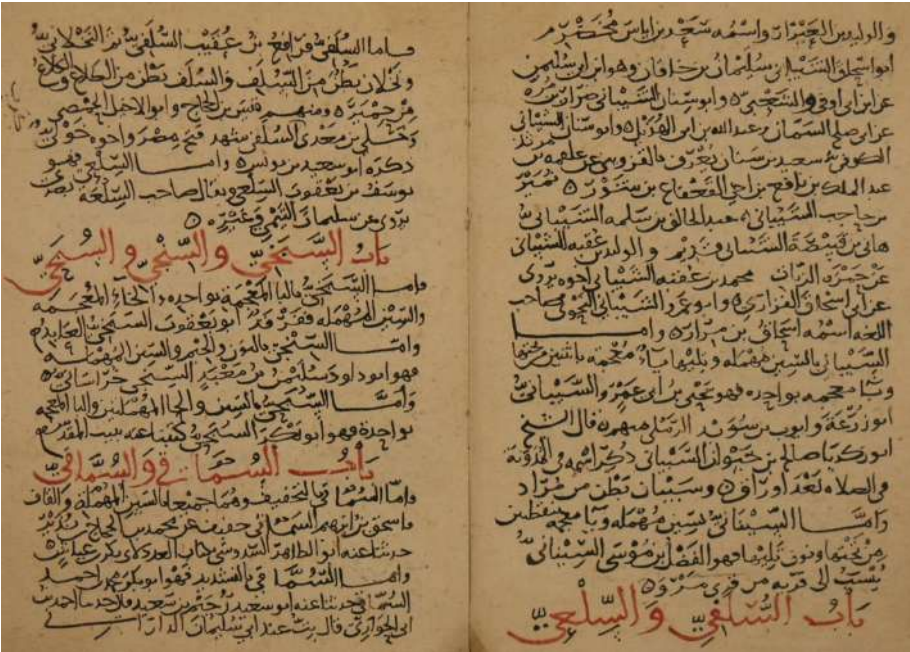 والوليد بن العيزار واسمه سعد بن اياس مخضرم
ابو اسحاق الشيباني سليمان بن خاقان وهو ابن ابي سليمن
عن ابن ابي اوفى والشعبي وابو سنان الشيباني ضرار بن مره
عن ابي صالح السمان وعبد الله بن ابي الهذيل وابو سنان الشيباني
الكوفي سعيد بن سنان يعرف بالقزويني عن علقمه بن مرثد
عبد الملك بن نافع بن اخي القعقاع بن شور نمير
عبد الخالق بن سلمه الشيباني
هاني بن قبيصة الشيباني قديم والوليد بن عقبه الشيباني
عن حمزه الزيات محمد بن عقبه الشيباني اخوه يروي
عن ابي اسحاق الفزاري وابو عمرو الشيباني النحوي صاحب
اللغه اسمه اسحاق بن مرار واما
السيباني بالسين مهمله ويليها ياء معجمه باثنين من تحتها
وبا معجمه بواحده فهو يحيى بن ابي عمرو السيباني
ابو زرعة وايوب بن سويد الرملي منهم قال الشيخ
ابو زكريا صالح بن حيوان السيباني ذكر اسمه في المدونة
في الصلاه وسيبان بطن من مراد
واما السيناني بسين مهمله ويا معجمه بنقطتين
من تحتها ونون تليها فهو الفضل بن موسى السيناني
ينسب الى قريه من قرى مرو
باب السلفي والسلعي
فاما السلفي فرافع بن عقيب السلفي
ونجلان بطن من السلف والسلف بطن من الكلاع والكلاع
من حمير ومنهم قيس بن الحجاج وابو الاخيل الحمصي
وخلي بن معدي السلفي شهد فتح مصر واخوه خولي
ذكره ابو سعيد بن يونس واما السلعي فهو
يوسف بن يعقوب السلعي ويقال صاحب السلعه
يروي عن سليمان التيمي وغيره
باب السبخي والسنجي والسبحي
فاما السبخي بالبا المعجمة بواحده والخاء المعجمه
والسين المهمله ففرقد ابو يعقوب السبخي العابد
واما السنجي بالنون والجيم والسين المهمله
فهو ابو داود سليمن بن معبد السنجي خراساني
واما السبحي بالسين والحا المهملتين والبا المعجمه
بواحدة فهو ابو بكر السبحي كتبنا عنه ببيت المقدس
باب السماقي والسماقي
واما السماقي بالتخفيف وهما جميعا بالسين المهمله والقاف
حدثنا عنه ابو الطاهر السدوسي
واما السماقي بالتشديد فهو ابو بكر محمد بن احمد
السماقي حدثنا عنه ابو سعيد
ابي الحواري قال بت عند ابي سليمان الداراني